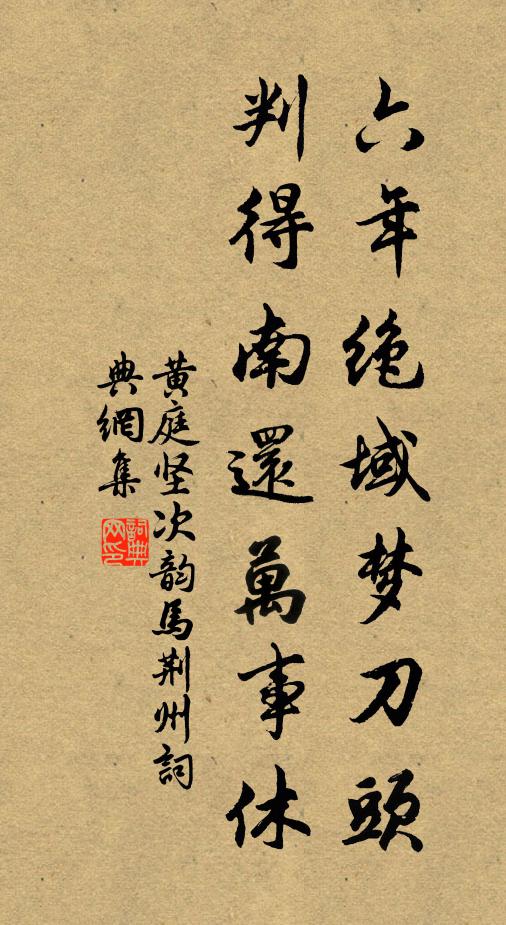 六年绝域梦刀頭
判得南還萬事休
黄庭坚次韵馬荆州詞
典網集
詞典网印